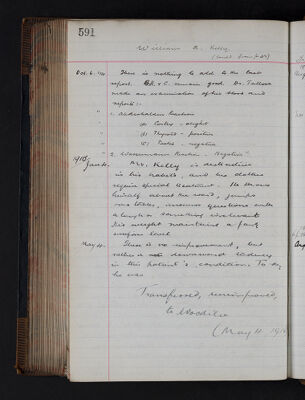 591
William A. Kelly
(contd. from p.
Oct. 6. There is nothing to add to the last
report. remain good. Dr.
made an examination of his blood and
reports:-
1. Abderhalden Reaction
(a) Cortex - slight
(b) Thyroid - positive
(c) Testes - negative
2. Wassermann Reaction - Negative
1915
Jan. 4. Mr. Kelly is destructive
in his habits, and his clothes
require special treatment. He throws
himself about the ward, jumps
over tables, answers questions with
a laugh or something irrelevant.
His weight maintains a fairly
uniform level.
May 10. There is no improvement, but
rather a downward tendency
in this patient's condition. To day
he was
Transferred, unimproved,
to Woodilee
(May 11 191